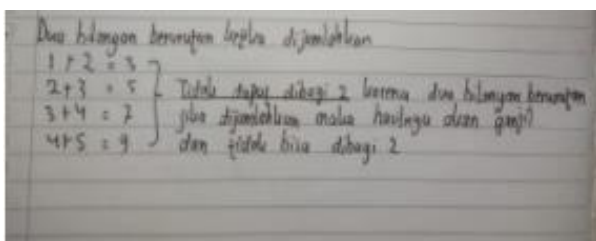 Dua bilangan berurutan ketika dijumlahkan
1 + 2 = 3
2 + 3 = 5 Tidak dapat dibagi 2 karena dua bilangan berurutan
3 + 4 = 7 jika dijumlahkan maka hasilnya akan ganjil
4 + 5 = 9 dan tidak bisa dibagi 2